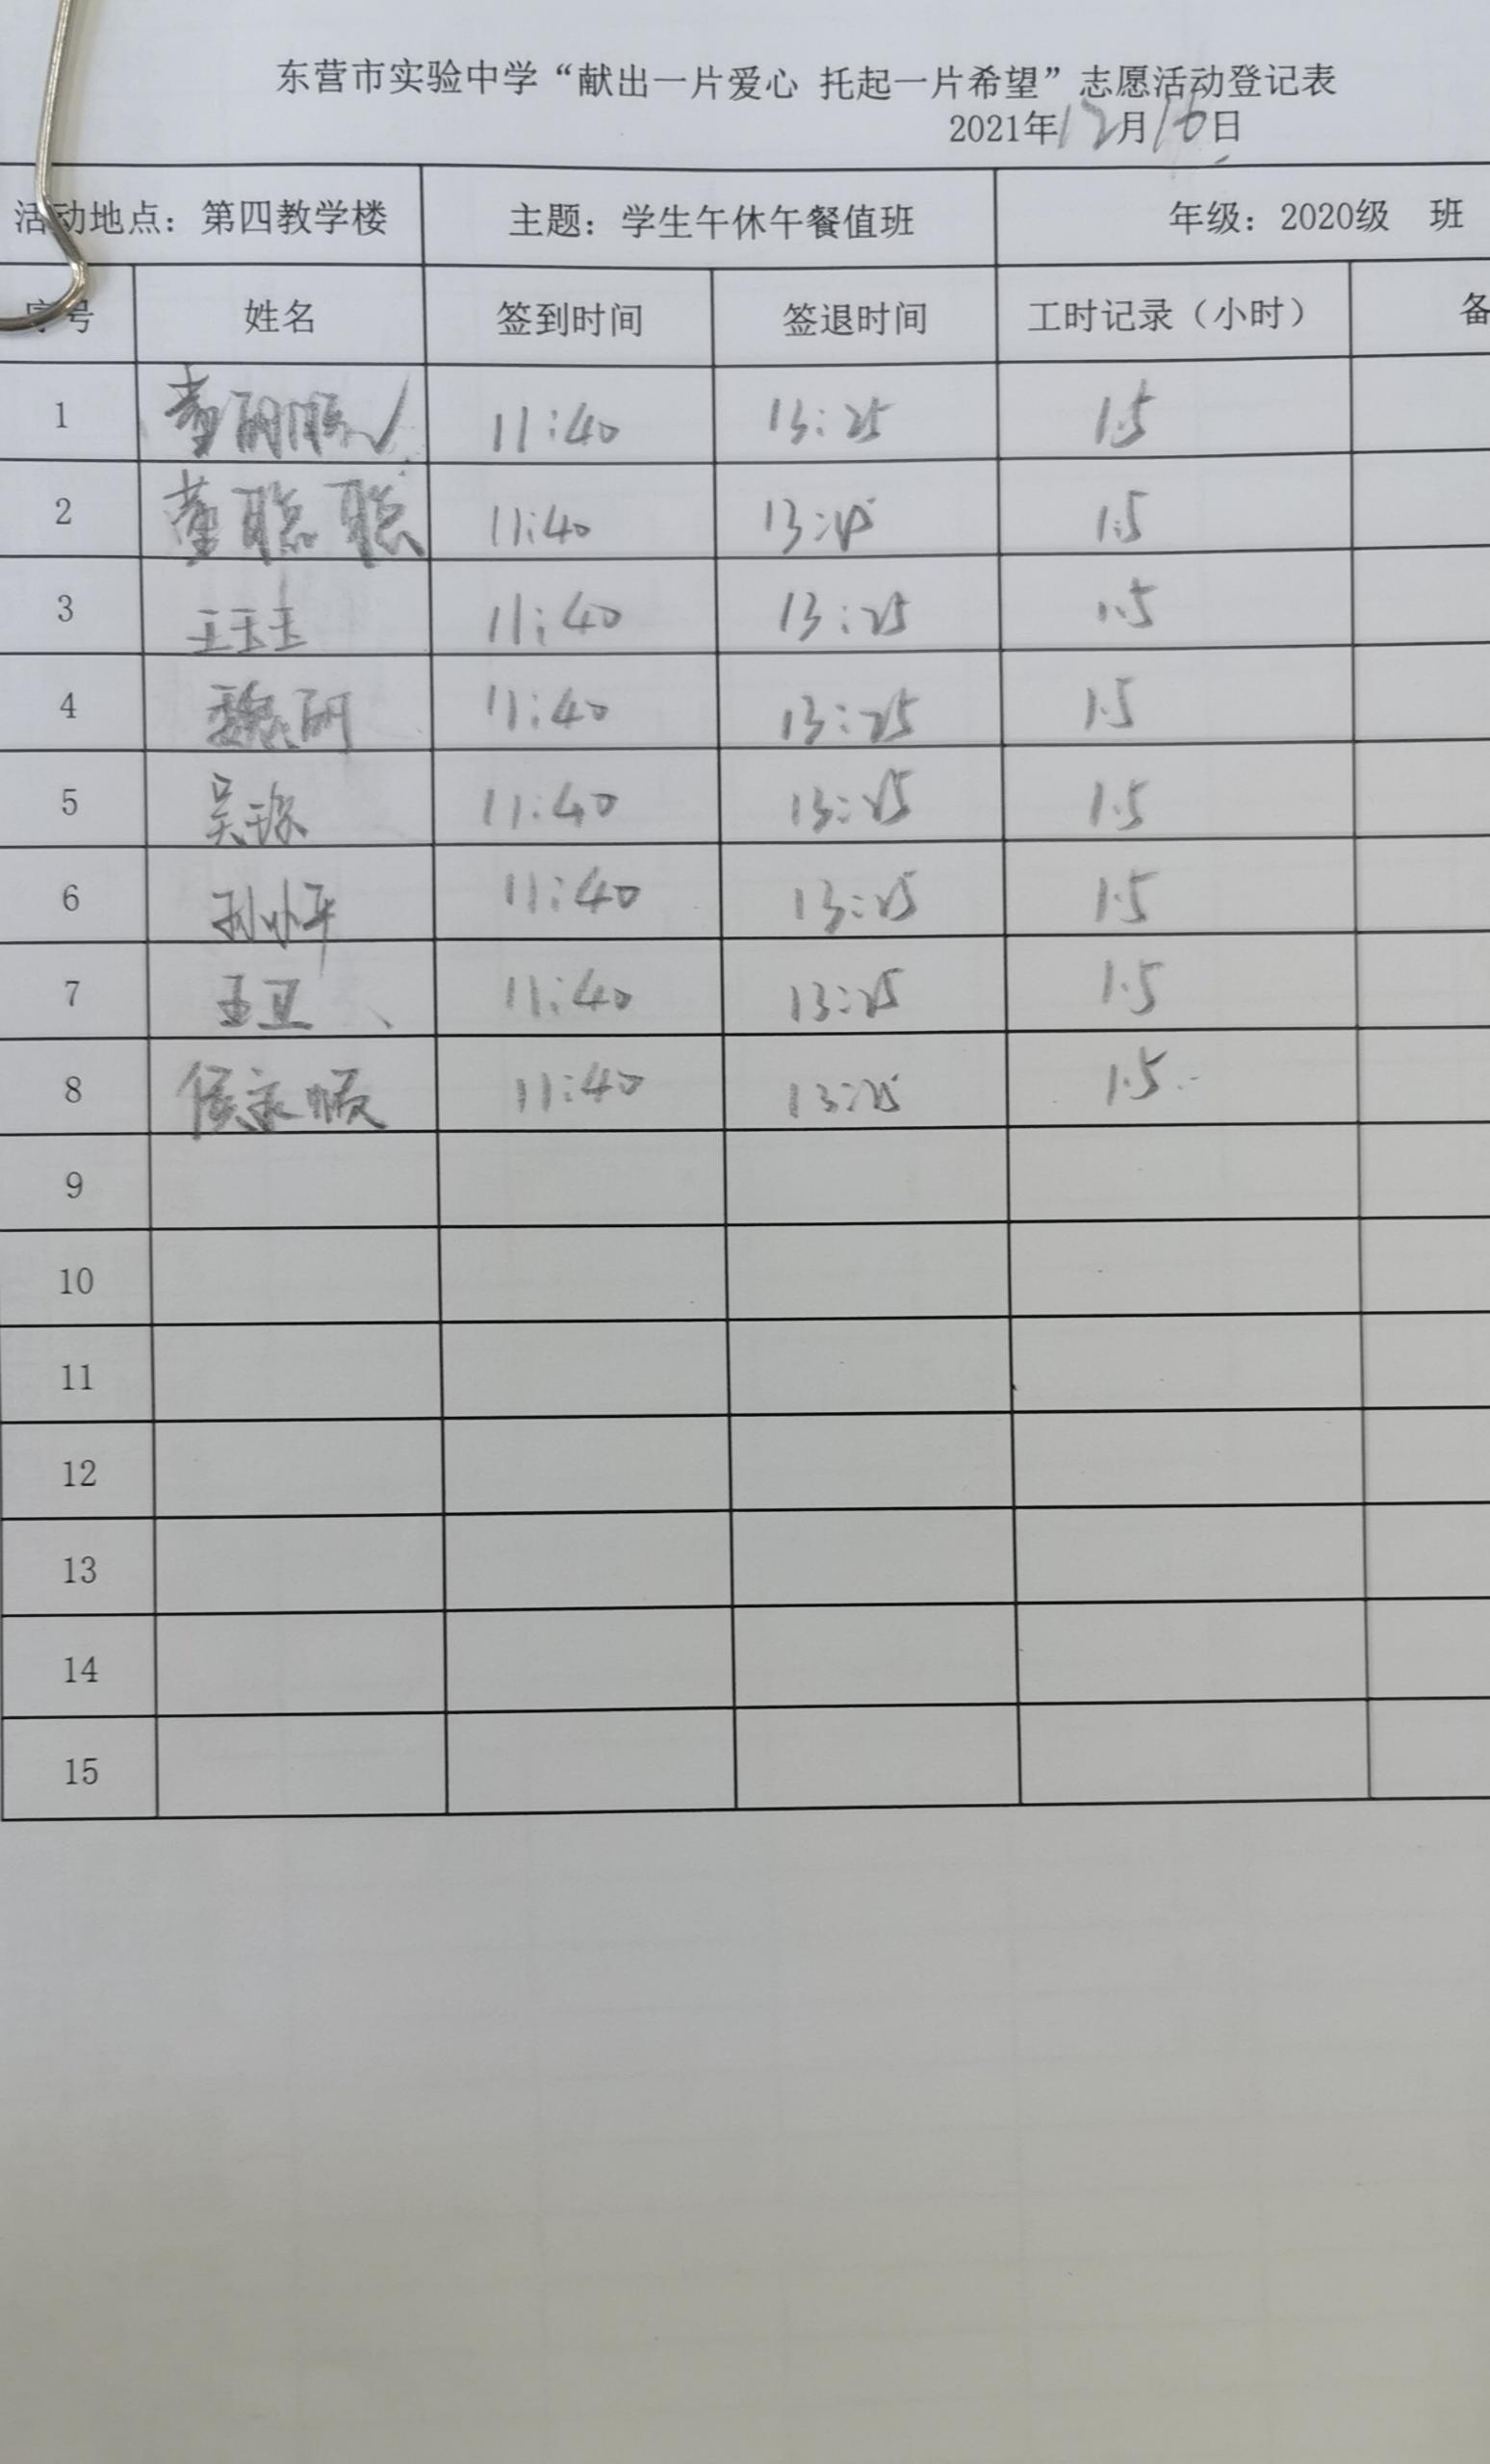 东营市实验中学“献出一片爱心 托起一片希望”志愿活动登记表
2021年12月16日
活动地点：第四教学楼 主题：学生午休午餐值班 年级：2020级 班
序号 姓名 签到时间 签退时间 工时记录（小时） 备
1 董 11:40 13:25 1.5
2 董聪聪 11:40 13:25 1.5
3 王玉玉 11:40 13:25 1.5
4 魏丽 11:40 13:25 1.5
5 吴琼 11:40 13:25 1.5
6 孙小平 11:40 13:25 1.5
7 王卫 11:40 13:25 1.5
8 侯永顺 11:40 13:25 1.5
9
10
11
12
13
14
15